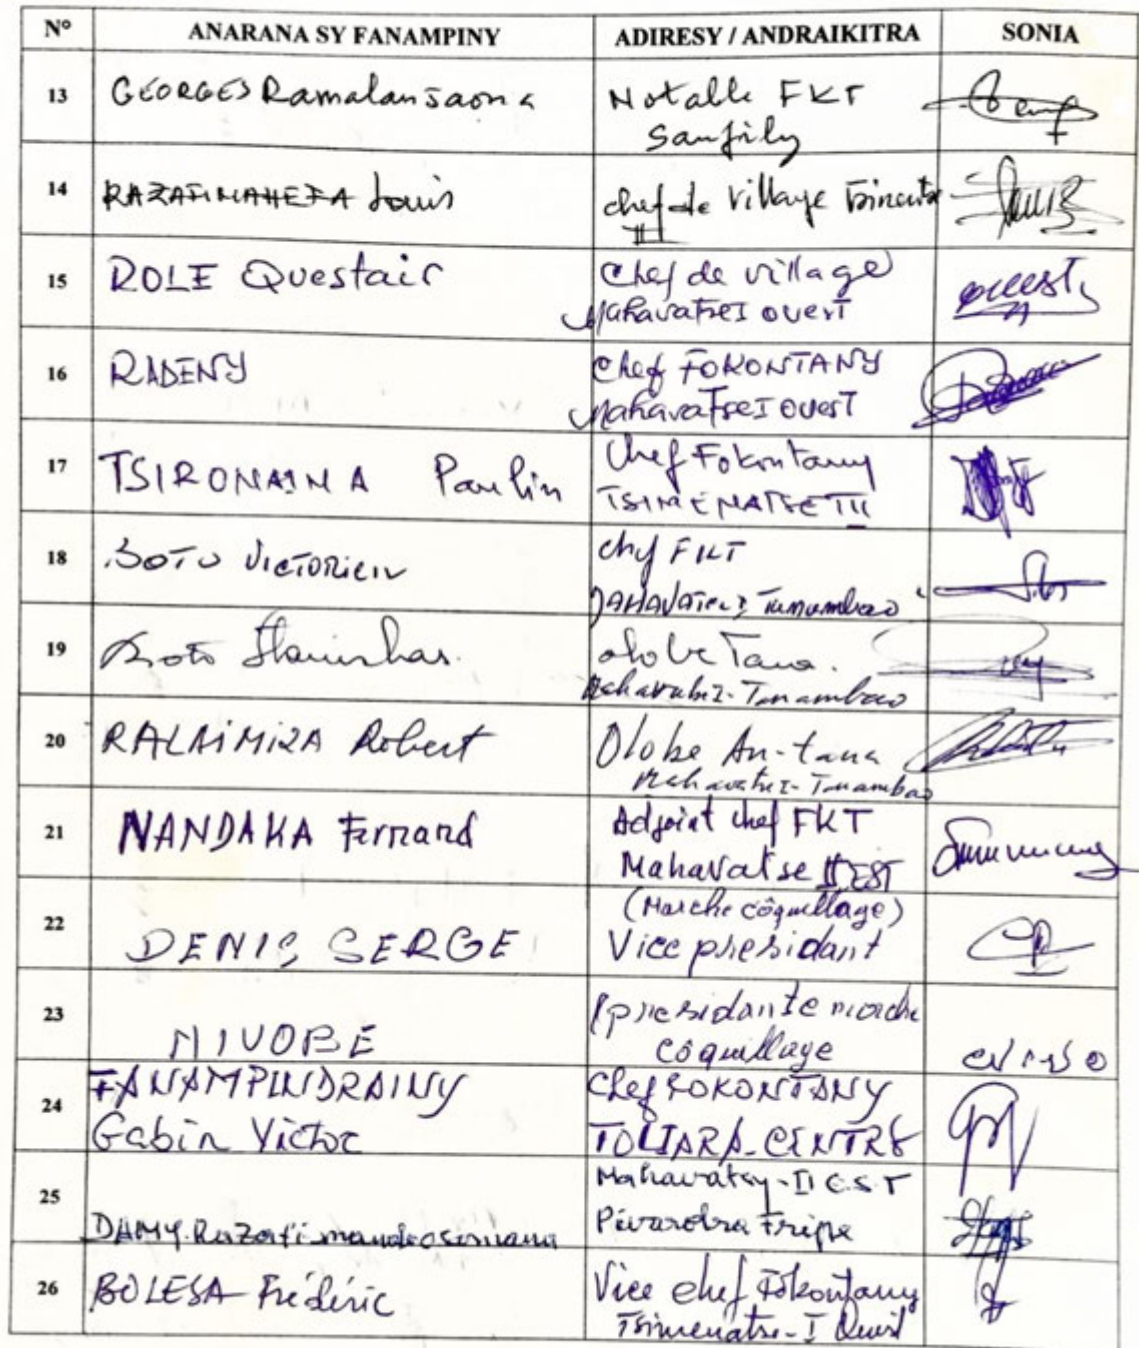 N° ANARANA SY FANAMPINY ADIRESY / ANDRAIKITRA SONIA
13 GEORGES Ramalanjaona Notable FKT
Sanfily
14 RAZAFIMAHEFA Louis chef de village
II
15 ROLE Questair Chef de village
Mahavatse I ouest
16 RADENY Chef FOKONTANY
Mahavatse I ouest
17 TSIRONAINA Paulin Chef Fokontany
TSIMENATSE III
18 SOTO VICTORIEN chef FKT
MAHAVATSE I Tanambao
19 Stanislas. olobe Tana.
Mahavatse I-Tanambao
20 RALAIMIZA Robert Olobe An-tana
Mahavatse I-Tanambao
21 NANDAHA Fernand Adjoint chef FKT
Mahavatse II EST
22 DENIS SERGE (Marche côquillage)
Vice presidant
23 NIVOBE presidante marche
côquillage
24 FANAMPINDRAINY Chef FOKONTANY
Gabin Victor TOLIARA-CENTRE
25 Mahavatsy-II EST
DAMY Fripe
26 BOLESA Frédéric Vice chef Fokontany
Tsimenatse-I Ouest